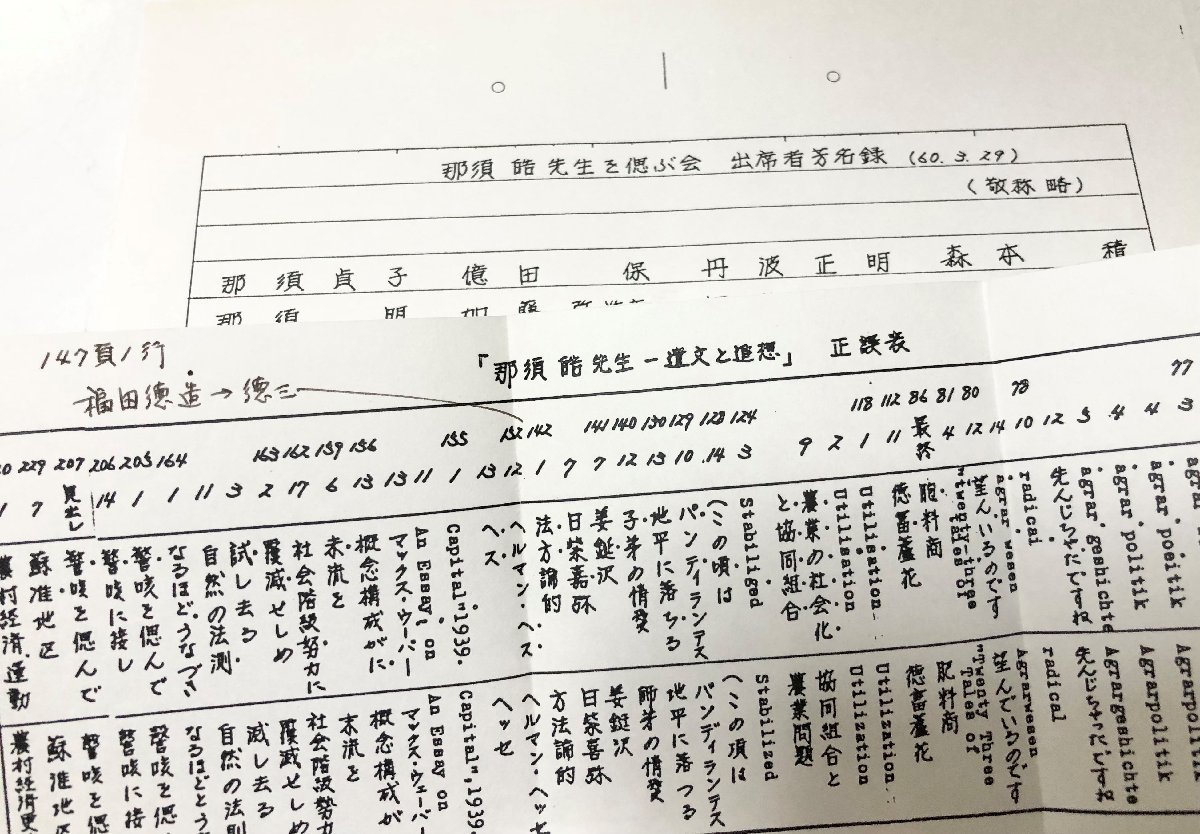 那須 皓 先生を偲ぶ会 出席者芳名録 (60.3.29)
(敬称略)
那須貞子 億田 保 丹波正明 森本 積
那須 明 加藤
147頁1行
福田徳造→徳三
「那須 皓先生−遺文と追想」 正誤表
229 207 206 205 164 163 162 159 156 155 152 142 141 140 130 129 128 124 118 112 86 81 80 78 77
1 7 見出し 14 1 1 11 3 2 17 6 13 13 11 1 13 12 1 7 7 12 13 10 14 3 9 2 1 11 最終 4 12 14 10 12 5 4 4 3
agrar positik
agrar politik
agrar geshichte
先んじちゃだですね
radicai
agrar wesen
望んいるのです
"twenty-three
tales of
胞料商
徳畗蘆花
Utilisation-
Utilisation
農業の社会化
と協同組合
Stabiliged
へこの頃は
パンディランテス
地平に落ちる
子弟の情発
姜鋌沢
日柴嘉弥
法方論的
ヘルマン・ヘス・
ヘス
Capital"1939.
An Essay on
マックス・ウーバー
概念構成がに
未流を
社会階級努力に
履滅せしめ
試し去る
自然の法測
なるほど、うなづき
警咳を偲んで
警咳に接し
警咳を偲んで
蘇准地区
農村経済運動
Agrarpolitik
Agrarpolitik
Agrargeshichte
先んじちゃだですね
radical
Agrarwesen
望んでいるのです
"Twenty Three
Tales of
肥料商
徳畗蘆花
Utilization-
Utilization
協同組合と
農業問題
Stabilised
へこの項は
パンディランテス
地平に落つる
師弟の情発
姜鋌沢
日柴喜弥
方法論的
ヘルマン・ヘッセ
ヘッセ
Capital"1939.
An Essay on
マックス・ウェーバー
概念構成が
末流を
社会階級勢力
履滅せしめ
滅し去る
自然の法則
なるほどとう
謦咳を偲
謦咳に接
謦咳を偲
蘇淮地区
農村経済更